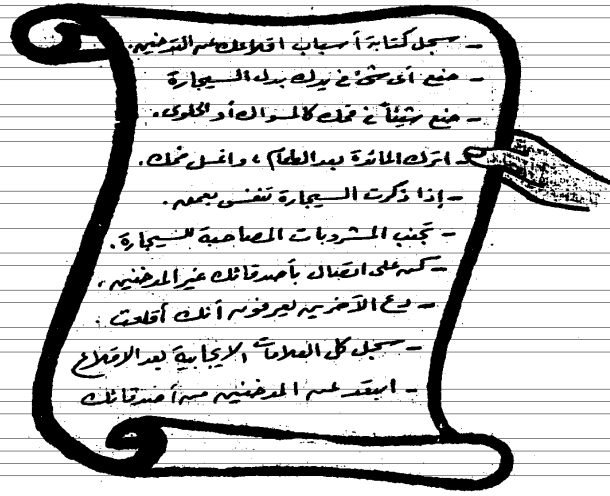 - سجل كتابة أسباب اقلاعك عن التدخين.
- ضع أى شئ في يدك بدل السيجارة
- ضع شيئاً في فمك كالمسواك أو الحلوى.
- اترك المائدة بعد الطعام، واغسل فمك.
- إذا ذكرت السيجارة تنفس بعمق.
- تجنب المشروبات المصاحبة للسيجارة.
- كن على اتصال بأصدقائك غير المدخنين.
- دع الآخرين يعرفون أنك أقلعت.
- سجل كل العلامات الايجابية بعد الاقلاع
- ابتعد عن المدخنين من أصدقائك